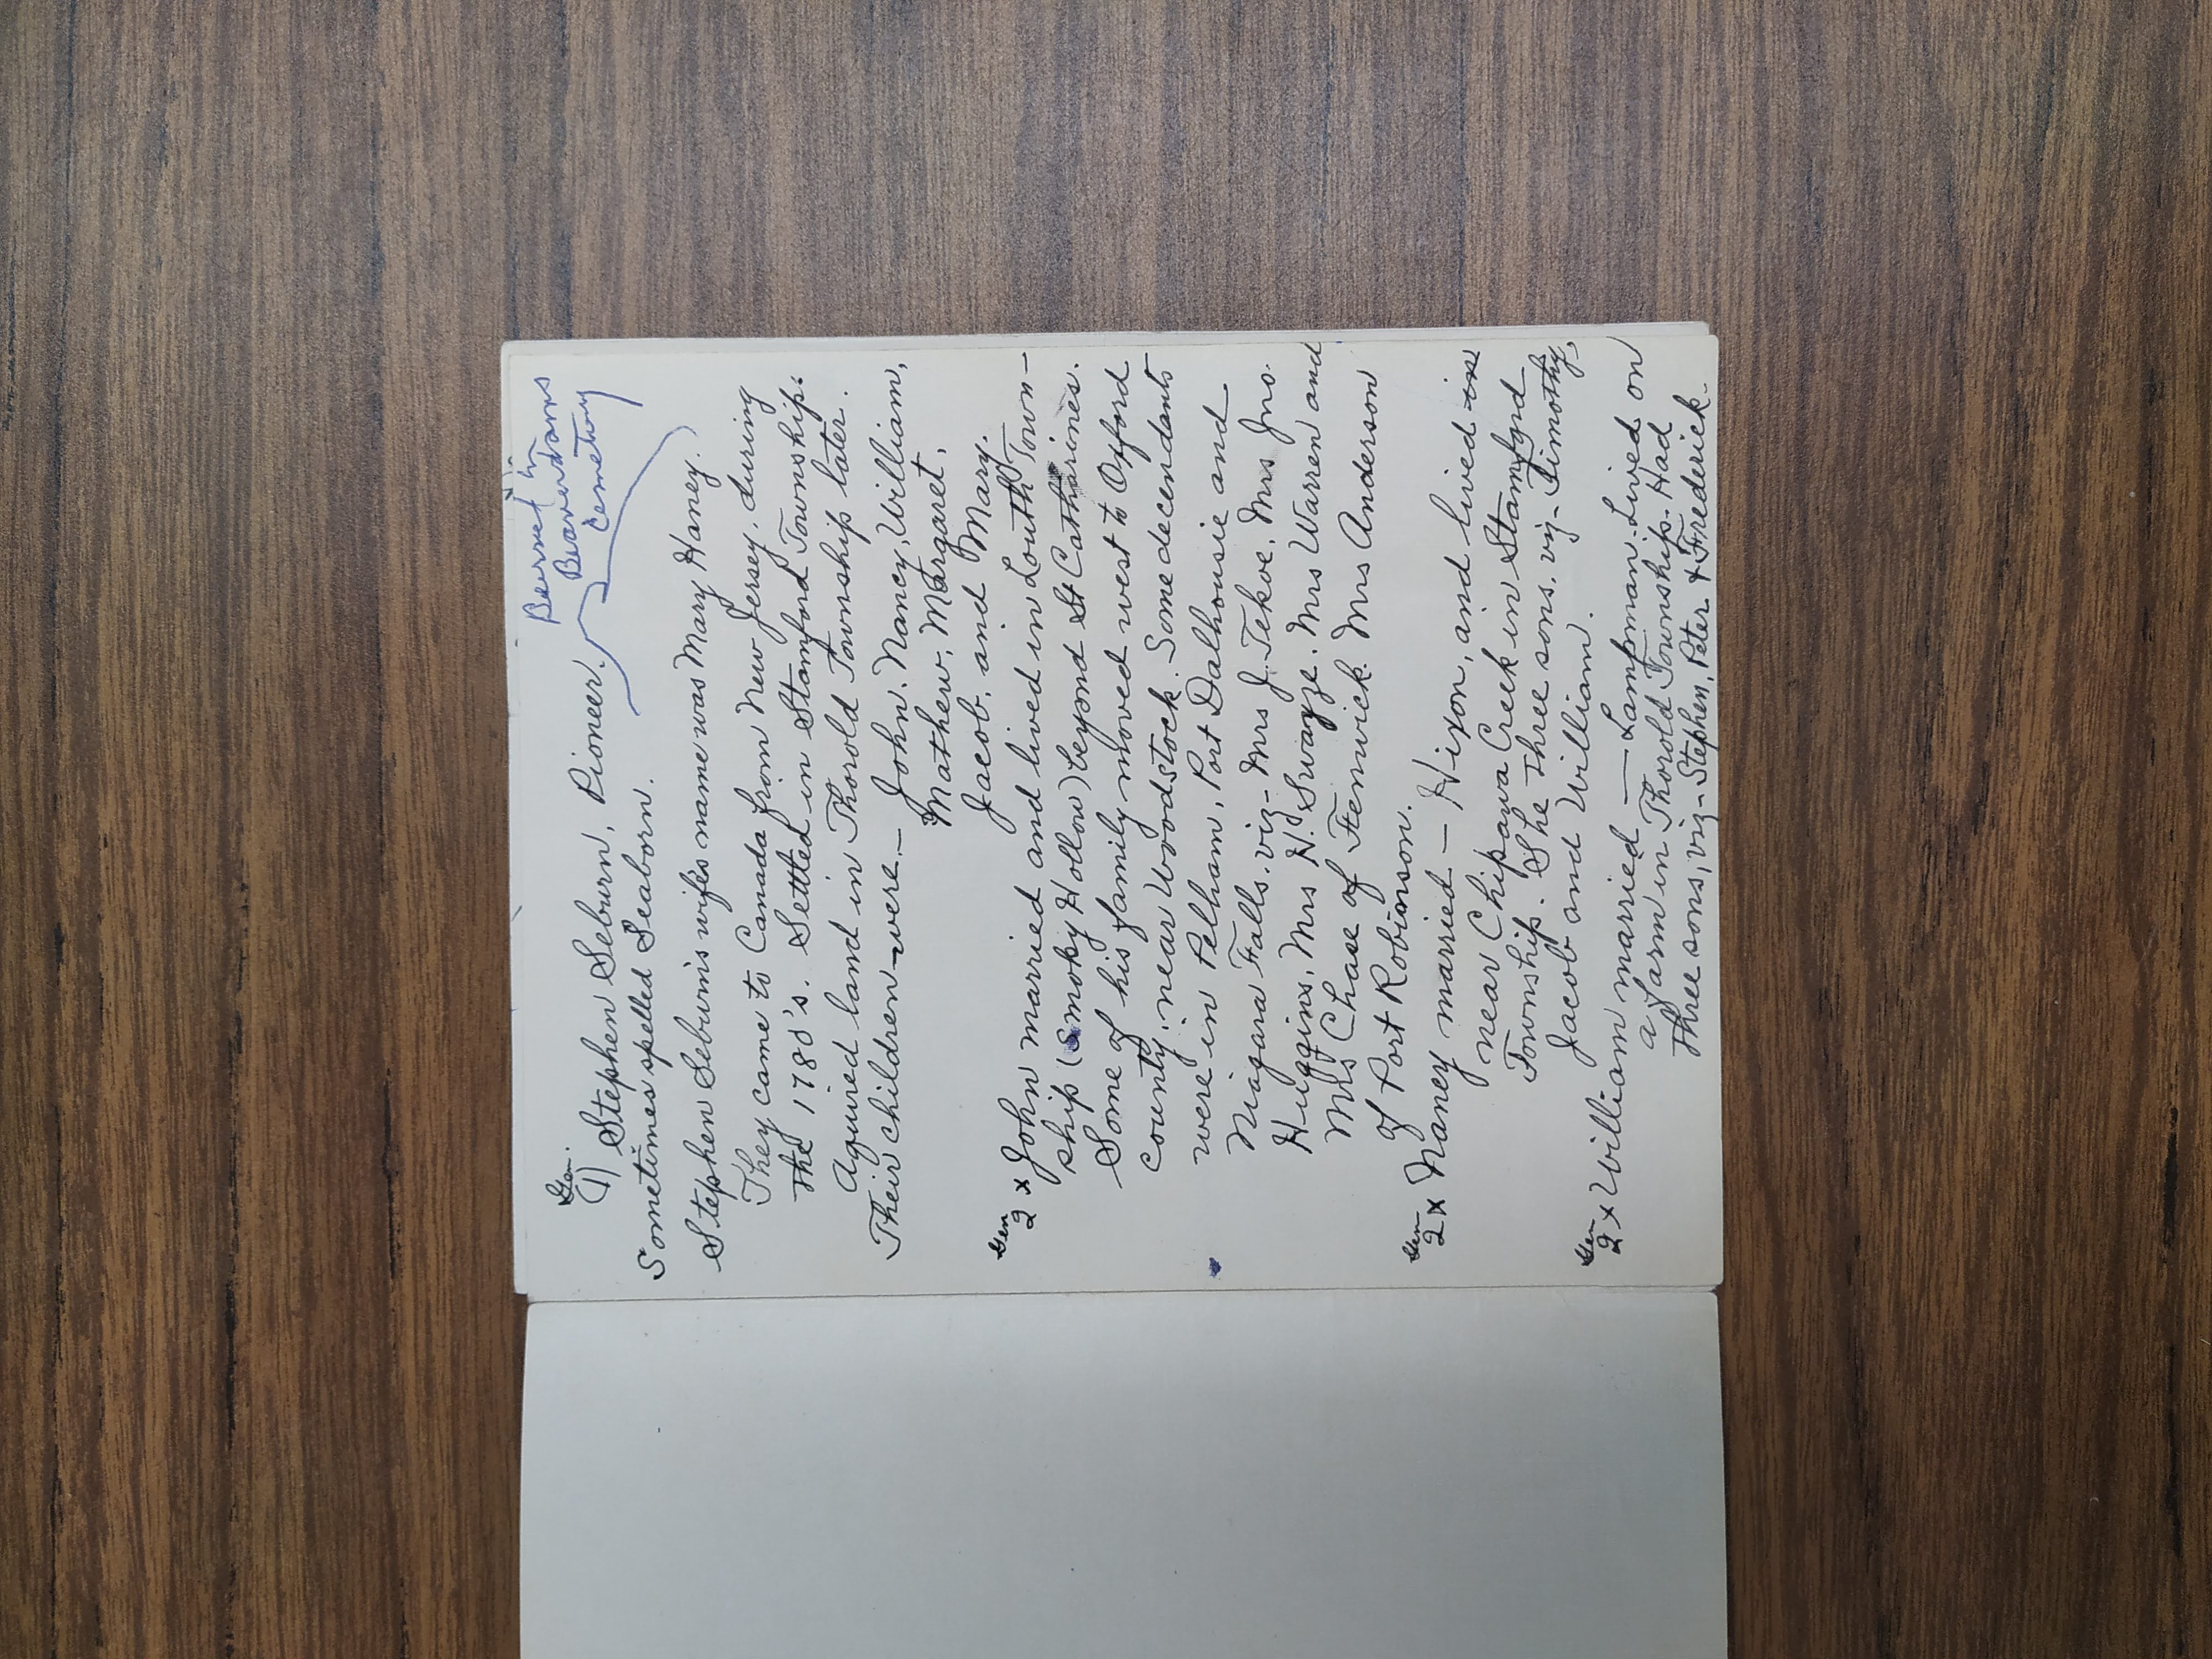 Burried in
Beaverdams
Cemetery
Gen.
(1) Stephen Seburn, Pioneer.
Sometimes spelled Seaborn.
Stephen Seburn's wifes name was Mary Haney.
They came to Canada from New Jersey, during
The 1780's. Settled in Stamford Township.
Aquired land in Thorold Township later.
Their children were - John, Nancy, William,
Mathew, Margaret,
Jacob, and Mary.
Gen
2 x John married and lived in Louth Town-
ship (Smoky Hollow) beyond St Catharines.
Some of his family moved west to Oxford
county, near Woodstock. Some decendants
were in Pelham, Port Dalhousie and
Niagara Falls. viz - Mrs J. Tekoe, Mrs Jno.
Huggins, Mrs N. Swayze, Mrs Warren and
Mrs Chase of Fenwick. Mrs Anderson
of Port Robinson.
Gen
2 x Nancy married — Hixon, and lived in
near Chipawa Creek in Stamford
Township. She Three sons, viz - Timothy,
Jacob and William.
Gen
2 x William married — Lampman. Lived on
a farm in Thorold Township. Had
Three sons, viz - Stephen, Peter & Frederick.